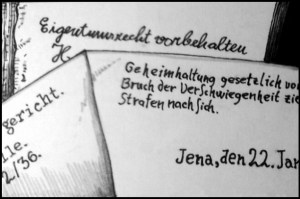 Eigentumsrecht vorbehalten
H.
Geheimhaltung gesetzlich vor
Bruch der Verschwiegenheit zie
Strafen nach sich.
gericht.
lle.
2/36.
Jena, den 22. Jan